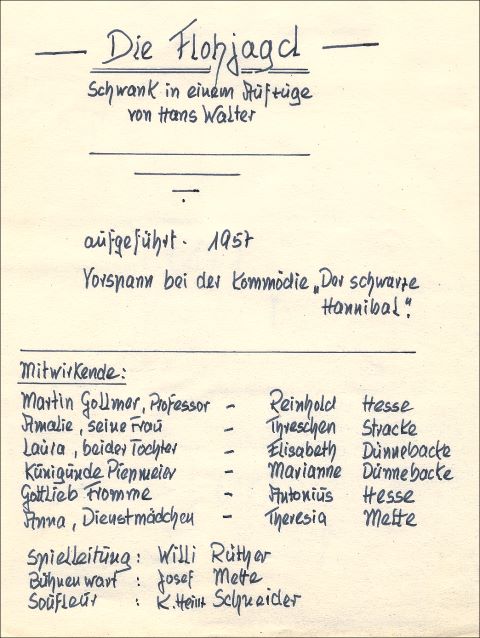 — Die Flohjagd —
Schwank in einem Aufzuge
von Hans Walter
aufgeführt. 1957
Vorspann bei der Kommödie „Der schwarze
Hannibal".
Mitwirkende:
Martin Gollmer, Professor - Reinhold Hesse
Amalie, seine Frau - Threschen Stracke
Laura, beider Tochter - Elisabeth Dünnebacke
Kunigunde Piepmeier - Marianne Dünnebacke
Gottlieb Fromme - Antonius Hesse
Anna, Dienstmädchen - Theresia Mette
Spielleitung: Willi Rüther
Bühnenwart : Josef Mette
Soufleur : K. Heinz Schneider